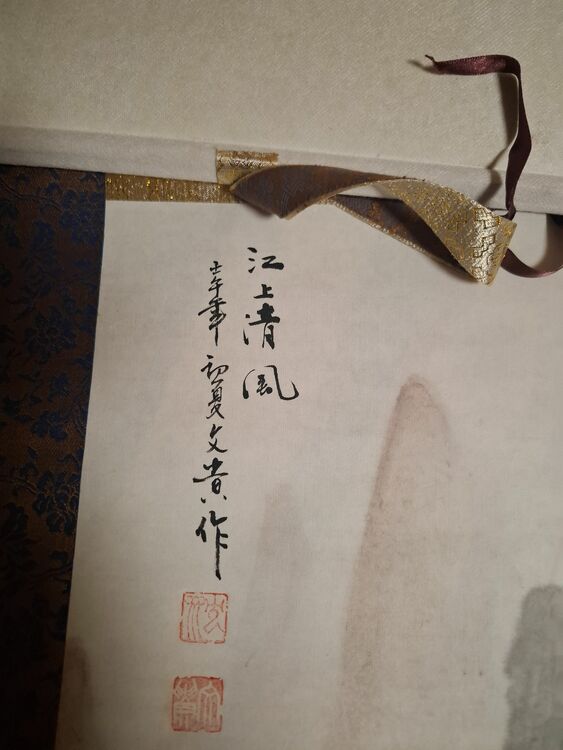 江上清风
壬午年初夏文贵作